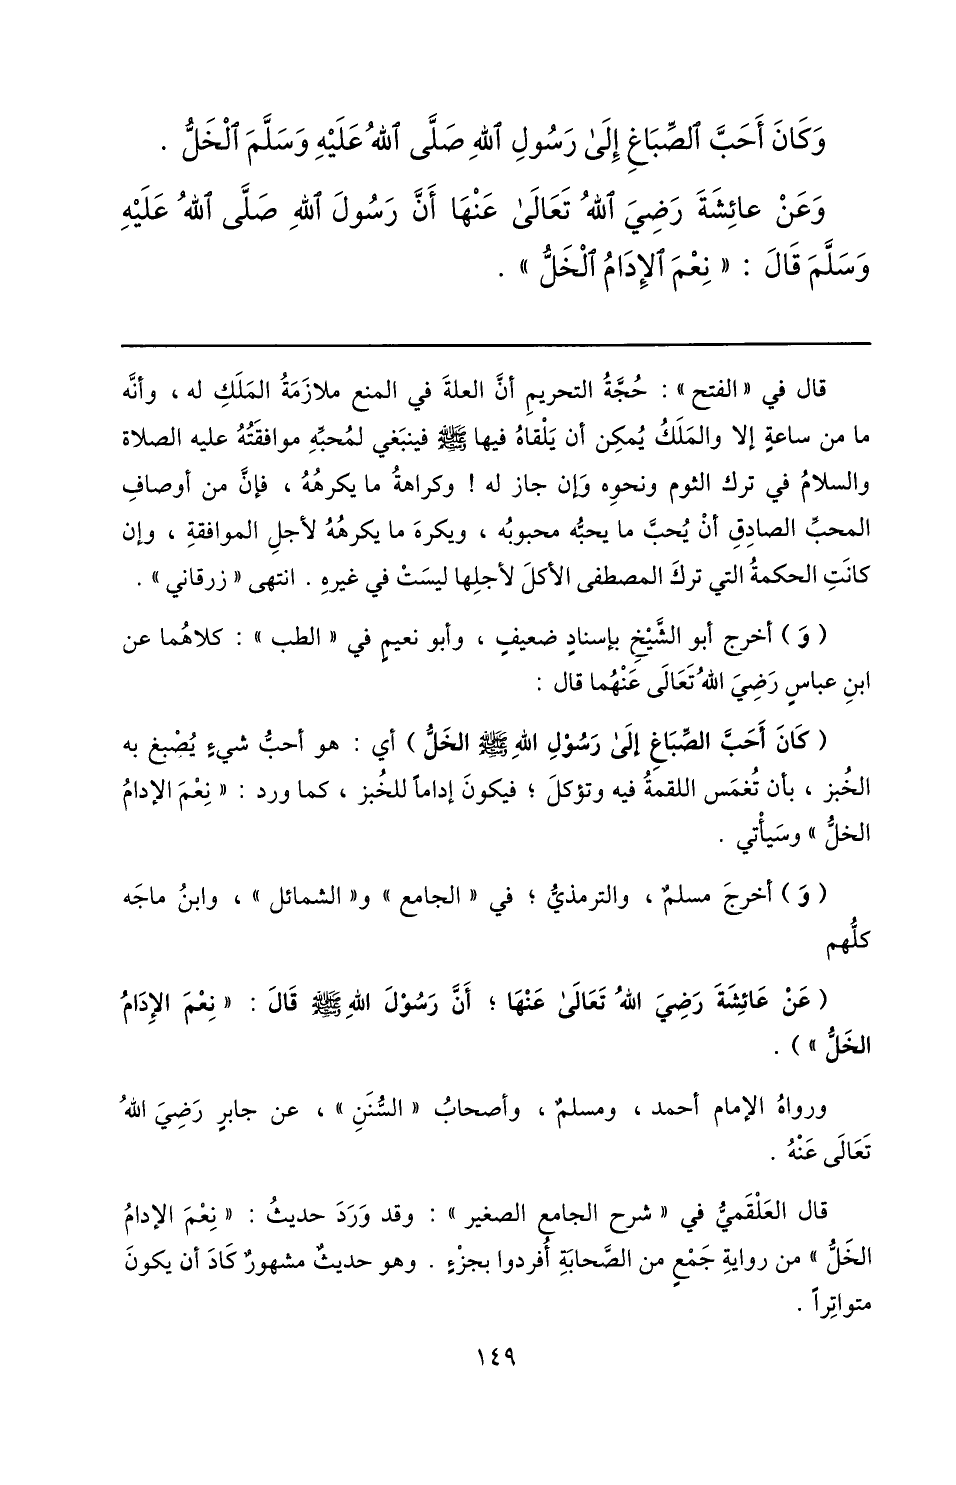 وَكَانَ أَحَبَّ ٱلصِّبَاغِ إِلَىٰ رَسُولِ ٱللهِ صَلَّى ٱللهُ عَلَيْهِ وَسَلَّمَ ٱلْخَلُّ .
وَعَنْ عائِشَةَ رَضِيَ ٱللهُ تَعَالَىٰ عَنْهَا أَنَّ رَسُولَ ٱللهِ صَلَّى ٱللهُ عَلَيْهِ
وَسَلَّمَ قَالَ : « نِعْمَ ٱلإِدَامُ ٱلْخَلُّ » .
قال في « الفتح » : حُجَّةُ التحريمِ أنَّ العلةَ في المنع ملازَمَةُ المَلَكِ له ، وأنَّه
ما من ساعةٍ إلا والمَلَكُ يُمكِن أن يَلْقاهُ فيها ﷺ فينبَغي لمُحبِّهِ موافقَتُهُ عليه الصلاة
والسلامُ في ترك الثوم ونحوِه وَإن جاز له ! وكراهةُ ما يكرهُهُ ، فإنَّ من أوصافِ
المحبِّ الصادِقِ أنْ يُحبَّ ما يحبُّه محبوبُه ، ويكرهَ ما يكرهُهُ لأجلِ الموافقةِ ، وإن
كانَتِ الحكمةُ التي تركَ المصطفى الأكلَ لأجلِها ليسَتْ في غيرِهِ . انتهى « زرقاني » .
( وَ ) أخرج أبو الشَّيْخِ بإسنادٍ ضعيفٍ ، وأبو نعيمٍ في « الطب » : كلاهُما عن
ابنِ عباسٍ رَضِيَ اللهُ تَعَالَى عَنْهُما قال :
( كَانَ أَحَبَّ الصِّبَاغِ إلَىٰ رَسُوْلِ اللهِ ﷺ الخَلُّ ) أي : هو أحبُّ شيءٍ يُصْبغ به
الخُبز ، بأن تُغمَس اللقمةُ فيه وتؤكلَ ؛ فيكونَ إداماً للخُبز ، كما ورد : « نِعْمَ الإدامُ
الخلُّ » وسَيأْتي .
( وَ ) أخرجَ مسلمٌ ، والترمذيُّ ؛ في « الجامع » و« الشمائل » ، وابنُ ماجَه
كلُّهم
( عَنْ عَائِشَةَ رَضِيَ اللهُ تَعَالَىٰ عَنْهَا ؛ أَنَّ رَسُوْلَ اللهِ ﷺ قَالَ : « نِعْمَ الإِدَامُ
الخَلُّ » ) .
ورواهُ الإمام أحمد ، ومسلمٌ ، وأصحابُ « السُّنَنِ » ، عن جابرٍ رَضِيَ اللهُ
تَعَالَى عَنْهُ .
قال العَلْقَميُّ في « شرح الجامع الصغير » : وقد وَرَدَ حديثُ : « نِعْمَ الإدامُ
الخَلُّ » من روايةِ جَمْعٍ من الصَّحابَةِ أُفردوا بجزْءٍ . وهو حديثٌ مشهورٌ كَادَ أن يكونَ
متواتِراً .
١٤٩